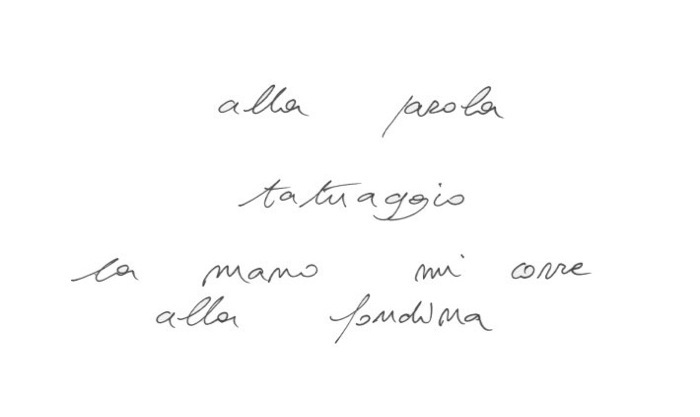 alla parola
tatuaggio
la mano mi corre
alla fondina